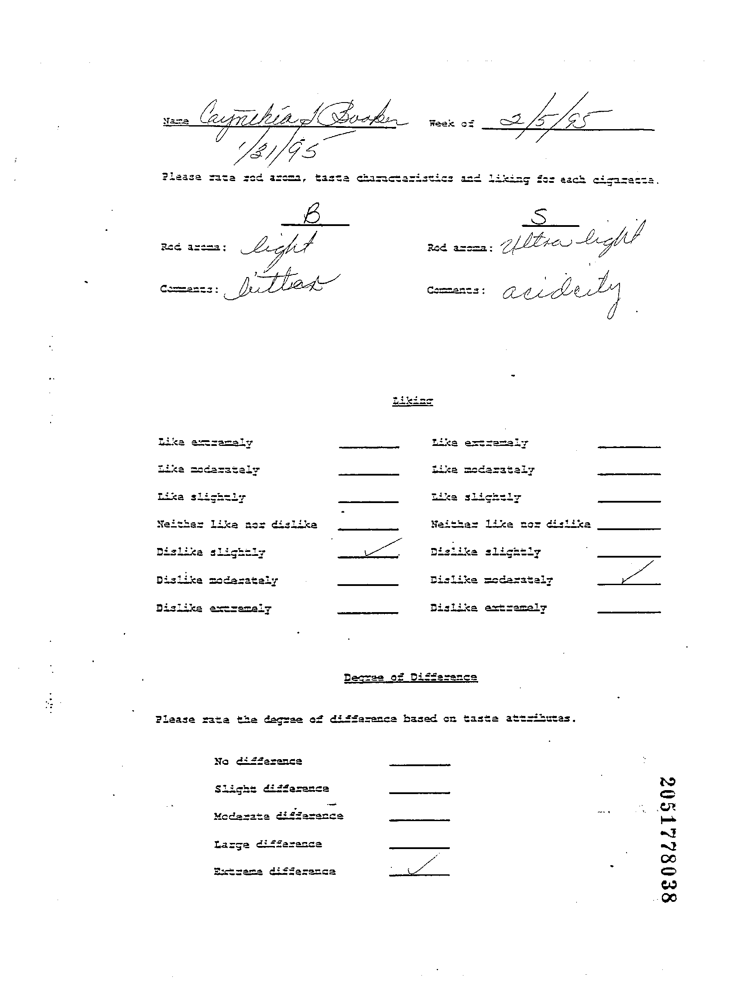 Name Caynthia J Booker Week of 2/5/95
1/31/95
Please rate rod aroma, taste characteristics and liking for each cigarette.
B S
Rod aroma: light Rod aroma: Ultra light
Comments: bitter Comments: acidcity
Liking
Like extremely Like extremely
Like moderately Like moderately
Like slightly Like slightly
Neither like nor dislike Neither like nor dislike
Dislike slightly ✓ Dislike slightly
Dislike moderately Dislike moderately ✓
Dislike extremely Dislike extremely
Degree of Difference
Please rate the degree of difference based on taste attributes.
No difference
Slight difference
Moderate difference
Large difference
Extreme difference ✓
2051778038